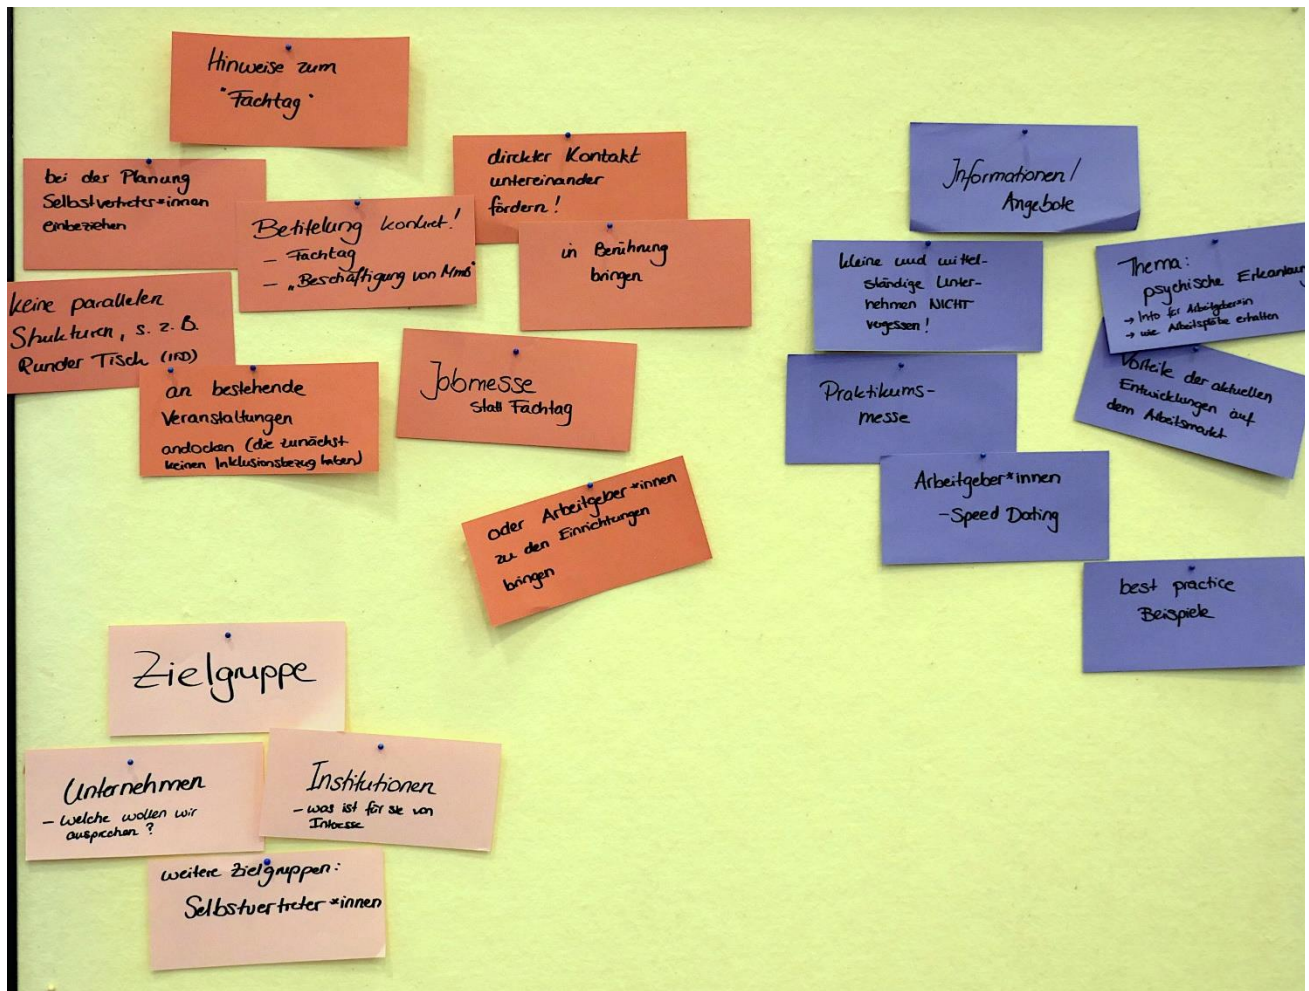 Hinweise zum
"Fachtag"
bei der Planung
Selbstvertreter*innen
einbeziehen
Betitelung konkret!
- Fachtag
- „Beschäftigung von MmB"
direkter Kontakt
untereinander
fördern!
in Berührung
bringen
keine parallelen
Strukturen, s. z. B.
Runder Tisch (IFD)
an bestehende
Veranstaltungen
andocken (die zunächst
keinen Inklusionsbezug haben)
Jobmesse
statt Fachtag
oder Arbeitgeber*innen
zu den Einrichtungen
bringen
Informationen/
Angebote
kleine und mittel-
ständige Unter-
nehmen NICHT
vergessen!
Thema:
psychische Erkrankung
→ Info für Arbeitgeber*in
→ wie Arbeitsplätze erhalten
Vorteile der aktuellen
Entwicklungen auf
dem Arbeitsmarkt
Praktikums-
messe
Arbeitgeber*innen
- Speed Dating
best practice
Beispiele
Zielgruppe
Unternehmen
- welche wollen wir
ansprechen?
Institutionen
- was ist für sie von
Interesse
weitere Zielgruppen:
Selbstvertreter*innen